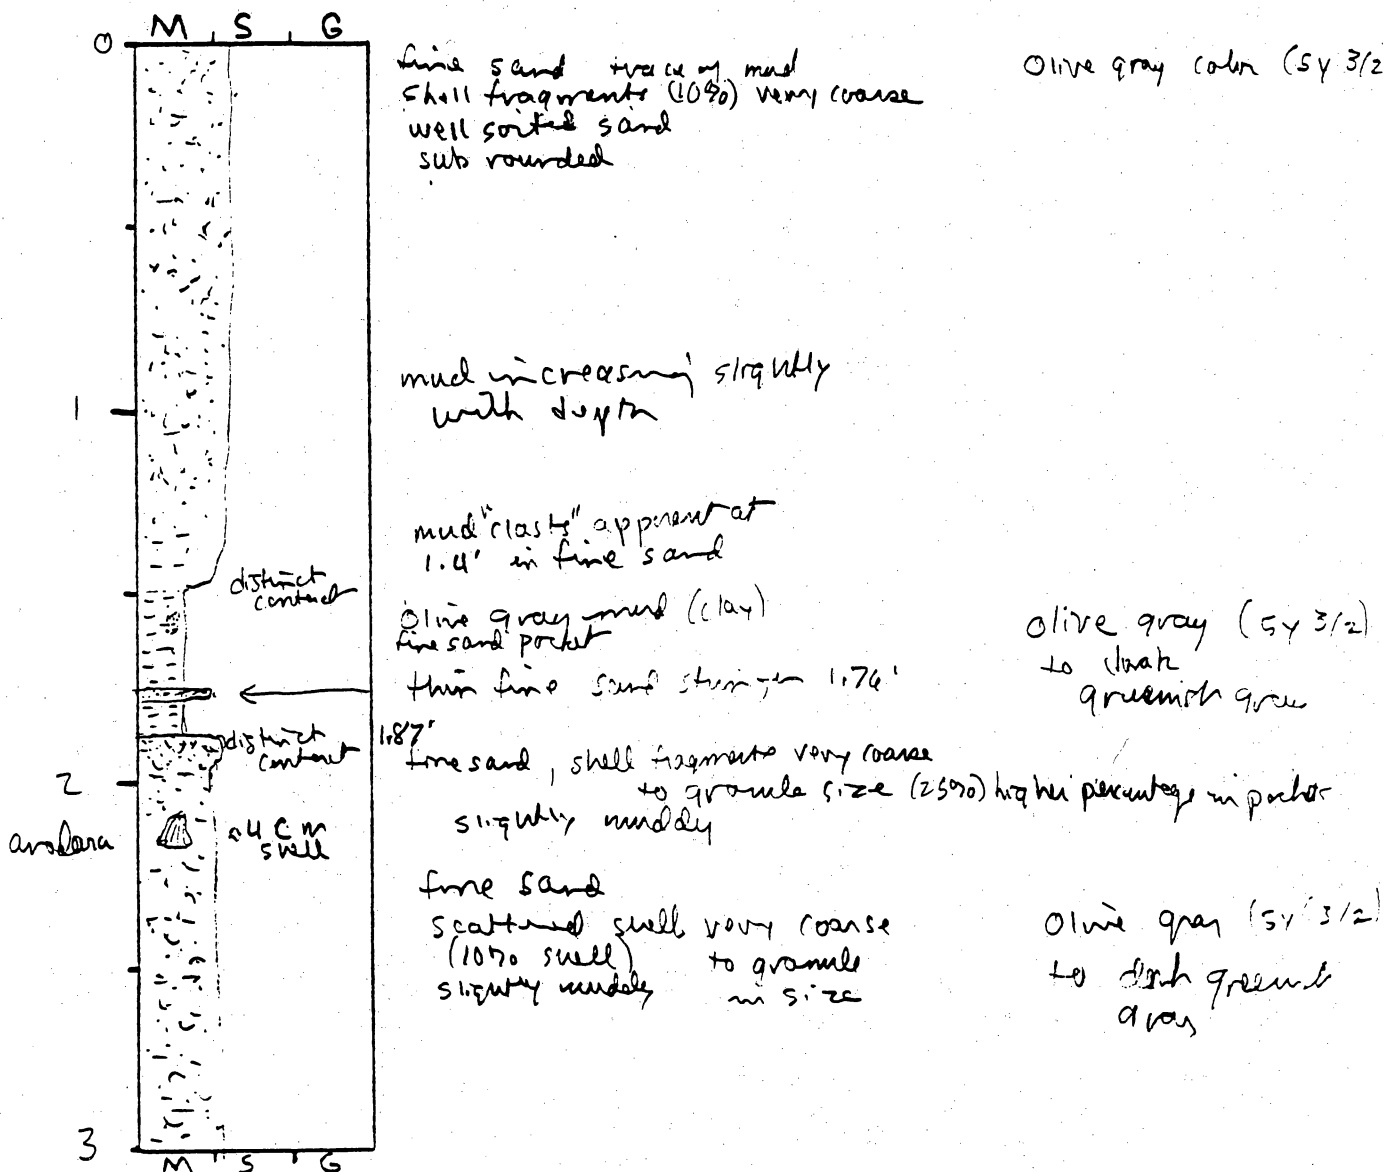 M S G
0
fine sand trace of mud
shell fragments (10%) very coarse
well sorted sand
sub rounded
Olive gray color (5Y 3/2
mud increasing slightly
with depth
1
mud "clasts" apparent at
1.4' in fine sand
distinct
contact
olive gray mud (clay)
fine sand pocket
thin fine sand stringer 1.76'
olive gray (5Y 3/2)
to dark
greenish gray
distinct
contact
1.87'
fine sand, shell fragments very coarse
to granule size (25%) higher percentage in pocket
slightly muddy
2
4 cm
shell
fine sand
scattered shell very coarse
(10% shell) to granule
slightly muddy in size
olive gray (5Y 3/2)
to dark greenish
gray
3
M S G